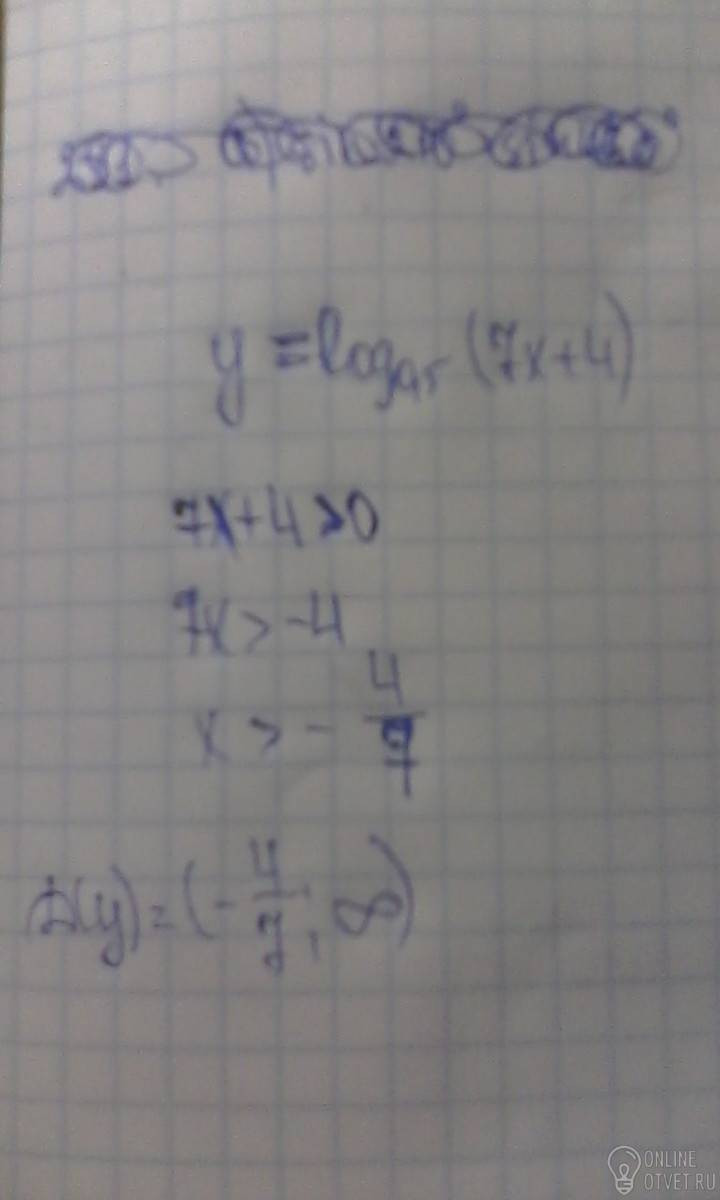 y = log₀,₅ (7x+4)
7x+4>0
7x > -4
x > - 4/7
D(y) = (- 4/7; ∞)
ONLINE
OTVET.RU